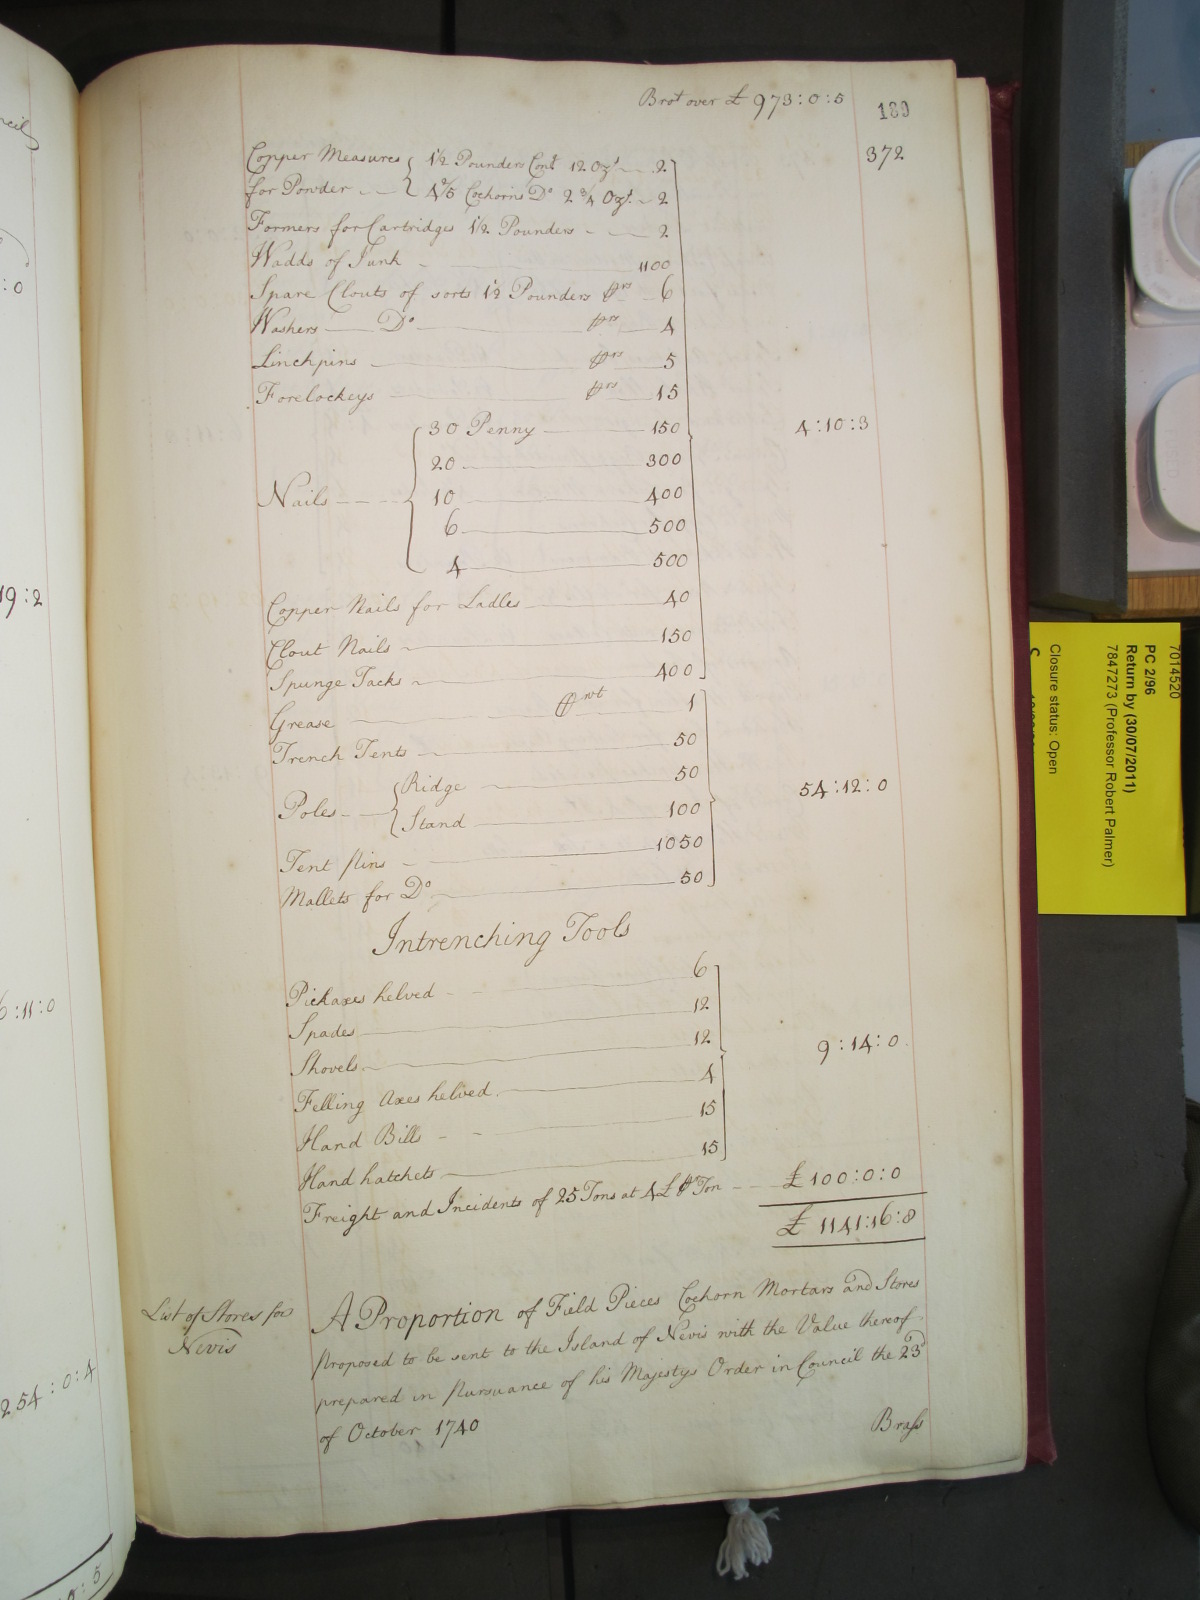 Bro.t over £ 973:0:5
189
372
Copper Measures { 1½ Pounders Cont.g 12 Oz.s 2
for Powder { 4⅖ Cochorns D.o 2¾ Oz.s 2
Formers for Cartridges 1½ Pounders 2
Wadds of Junk 1100
Spare Clouts of sorts 1½ Pounders prs 6
Washers D.o prs 4
Linchpins prs 5
Forelockeys prs 15
Nails { 30 Penny 150
4:10:3
20 300
10 400
6 500
4 500
Copper Nails for Ladles 40
Clout Nails 150
Spunge Tacks 400
Grease 1
Trench Tents 50
Poles { Ridge 50
Stand 100
54:12:0
Tent pins 1050
Mallets for D.o 50
Intrenching Tools
Pickaxes helved 6
Spades 12
Shovels 12
9:14:0
Felling Axes helved 4
Hand Bills 15
Hand hatchets 15
Freight and Incidents of 25 Tons at 4£ ⅌ Ton £ 100:0:0
£ 1141:16:8
List of Stores for
Nevis
A Proportion of Field Pieces Cochorn Mortars and Stores
proposed to be sent to the Island of Nevis with the Value thereof
prepared in pursuance of his Majestys Order in Council the 23d
of October 1740
Brass
:0
19:2
6:11:0
254:0:4
0:5
7014520
PC 2/96
Return by (30/07/2011)
7847273 (Professor Robert Palmer)
Closure status: Open